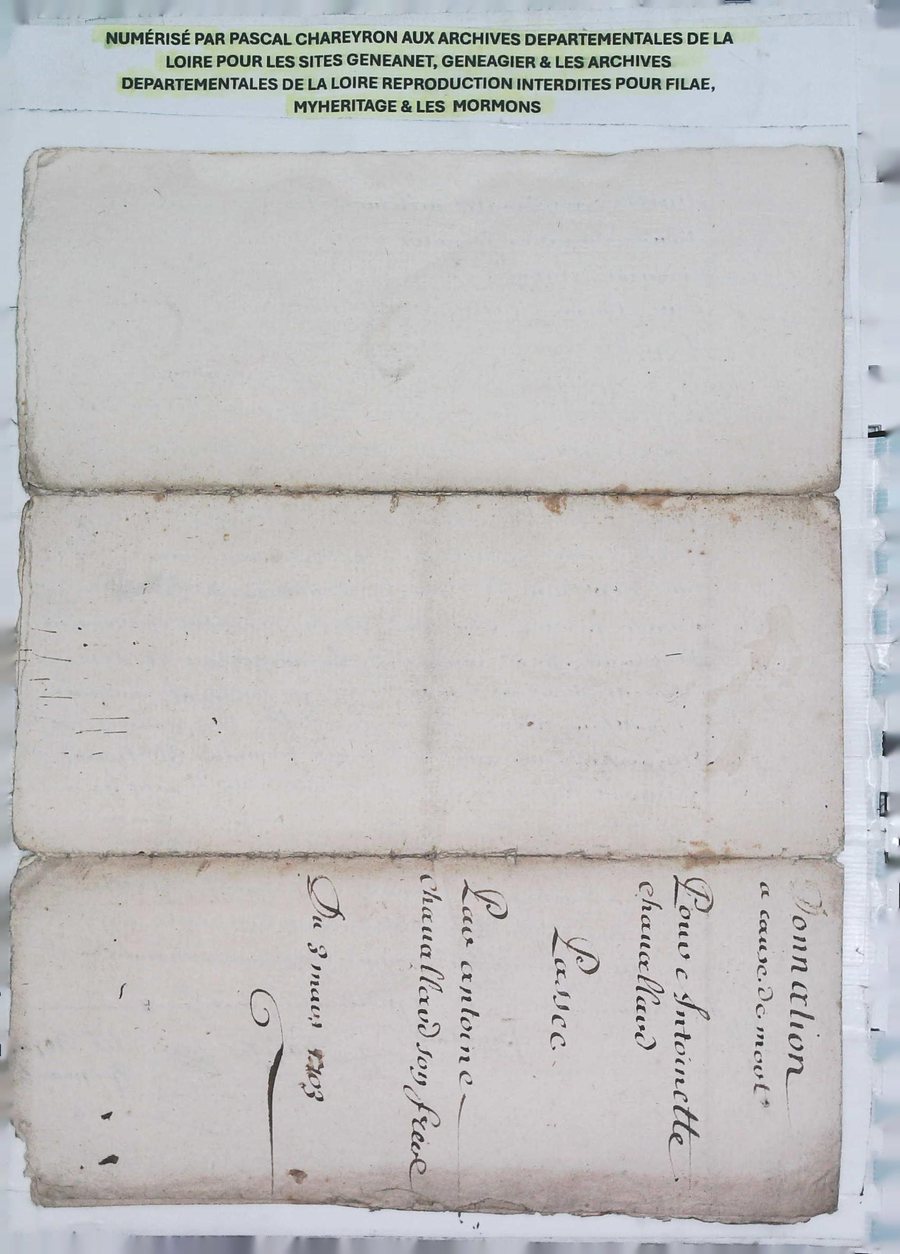 NUMÉRISÉ PAR PASCAL CHAREYRON AUX ARCHIVES DEPARTEMENTALES DE LA
LOIRE POUR LES SITES GENEANET, GENEAGIER & LES ARCHIVES
DEPARTEMENTALES DE LA LOIRE REPRODUCTION INTERDITES POUR FILAE,
MYHERITAGE & LES MORMONS
Donnation
a cause de mort
Pour Antoinette
chauallard
Passee
Par antoine
chauallard son frere
Du 3 mars 1703